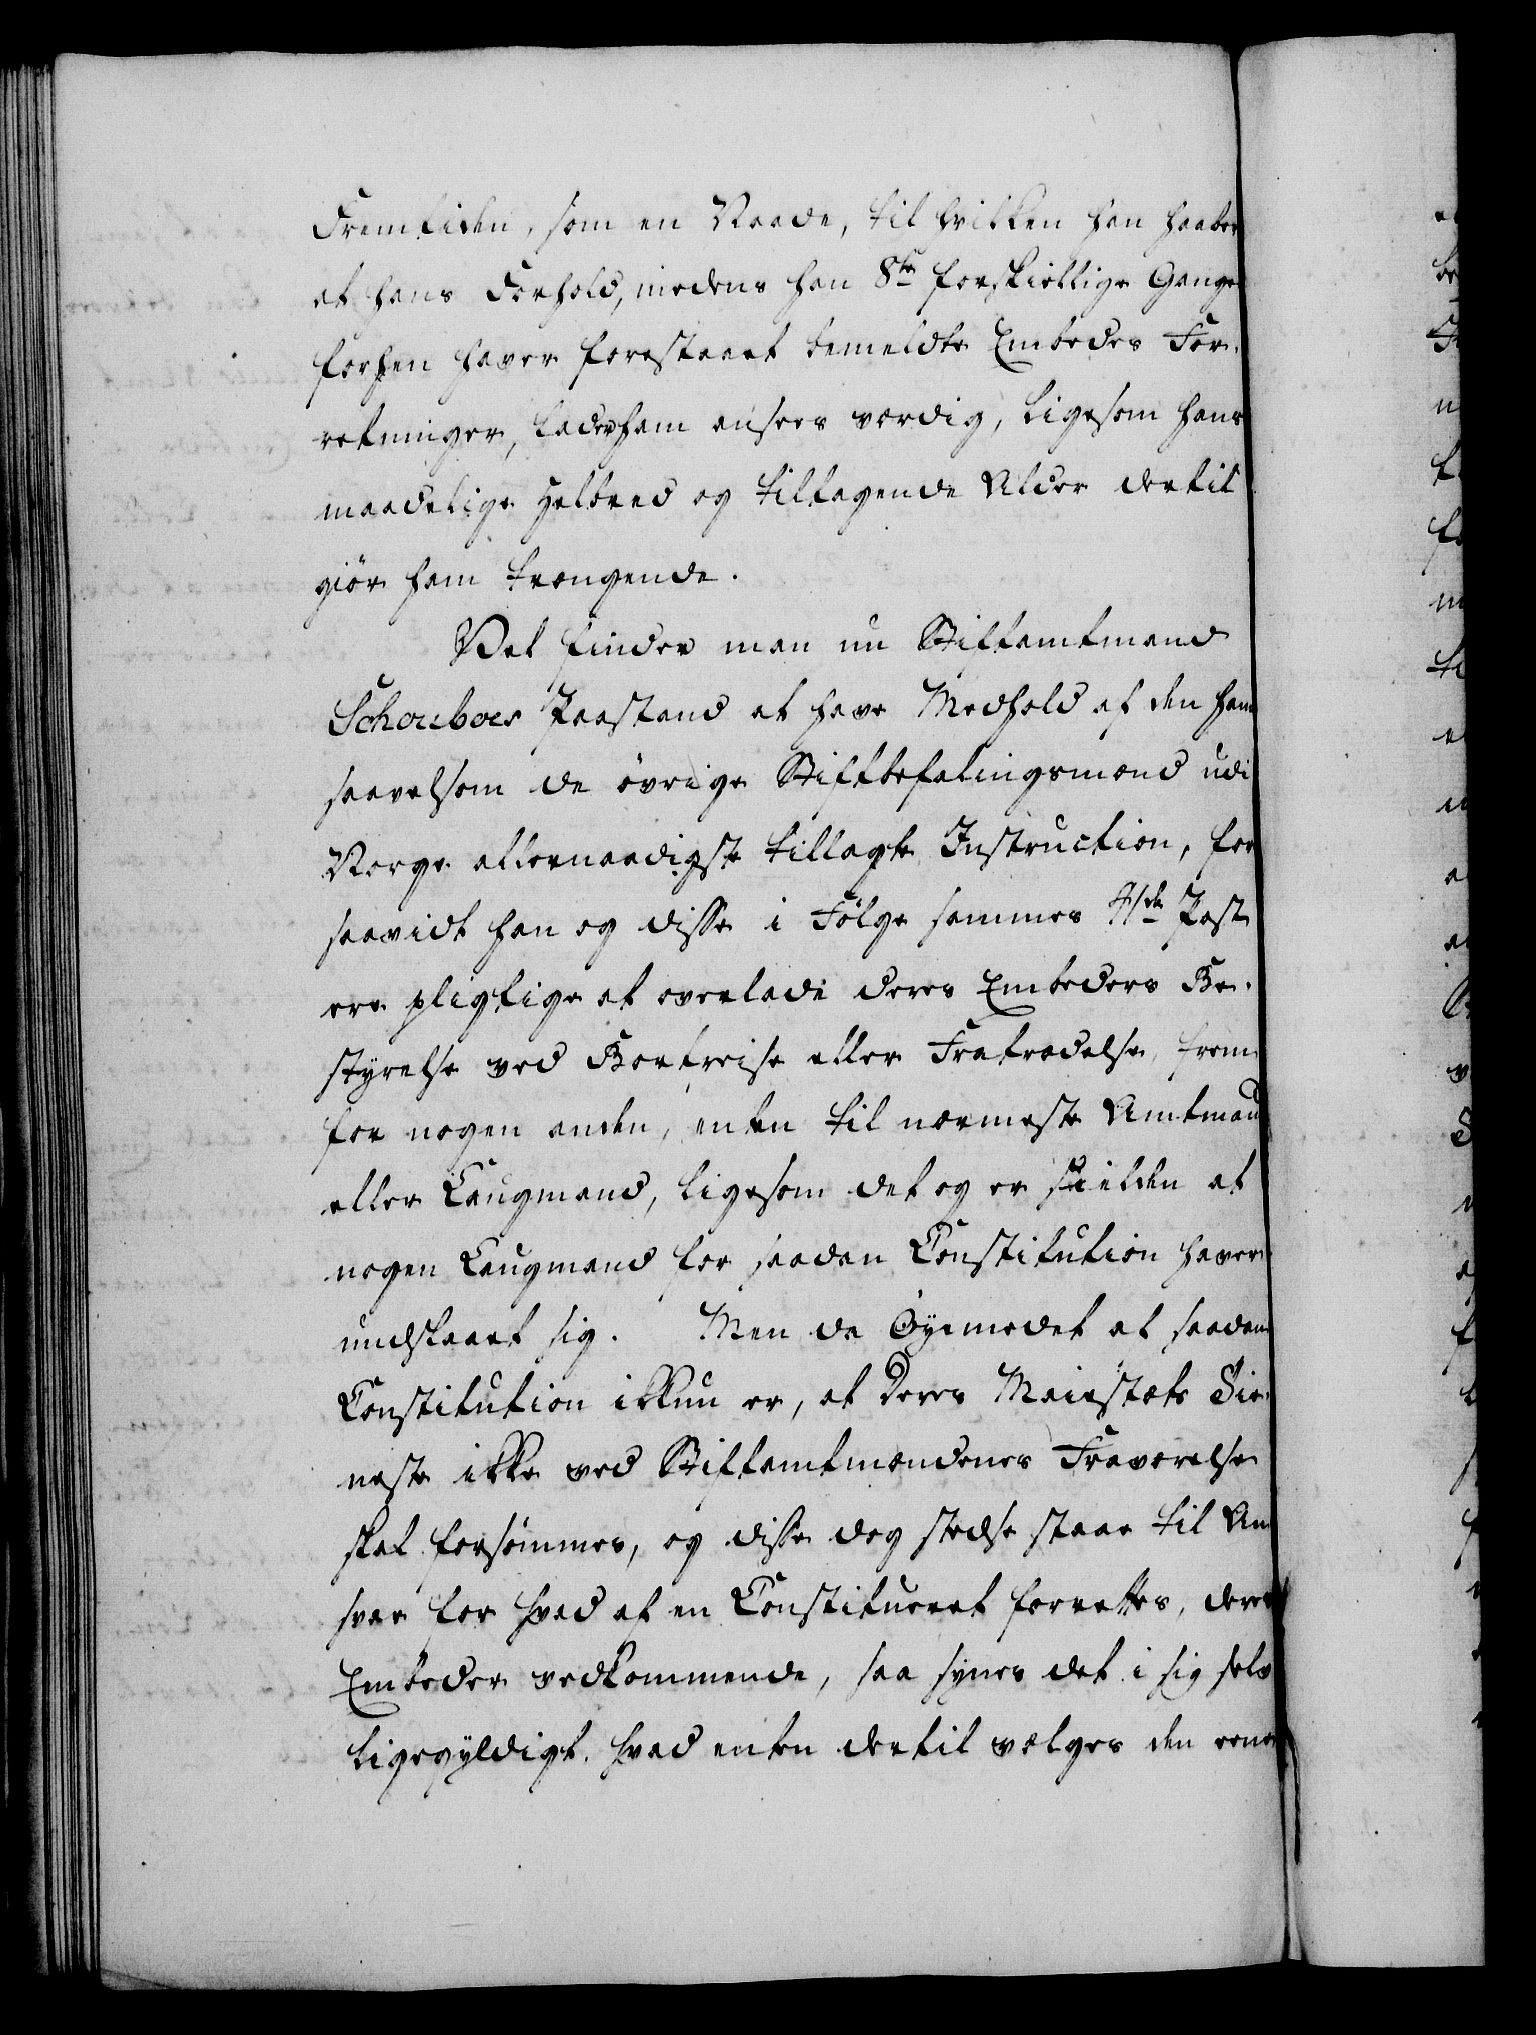 Fremtiden, som en Naade, til hvilken han haaber
at hans Forhold, medens han 8te forskiellige Gange
forhen haver forestaaet bemeldte Embedes For-
retninger, lader ham ansees værdig, ligesom hans
maadelige Helbred og tiltagende Alder dertil
giør ham trængende.
Vel finder man nu Stiftamtmand
Schouboes Paastand at have Medhold af den ham
saavelsom de øvrige Stiftbefalingsmænd udi
Norge allernaadigst tillagte Instruction, for
saavidt han og disse i Følge sammes 4de Post
ere pligtige at overlade deres Embeders Be-
styrelse ved Bortreise eller Fratrædelse, frem
for nogen anden, enten til nærmeste Amtmand
eller Laugmand, ligesom det og er sielden at
nogen Laugmand for saadan Constitution haver
undslaaet sig. Men da Øyemedet at saadan
Constitution ikkun er, at Deres Majestæts Tie-
neste ikke ved Stiftamtmændenes Fraværelse
skal forsømmes, og disse dog stedse staae til An-
svar for hvad af en Constitueret forrettes, deres
Embeder vedkommende, saa synes det i sig selv
ligegyldigt, hvad enten dertil vælges den eene